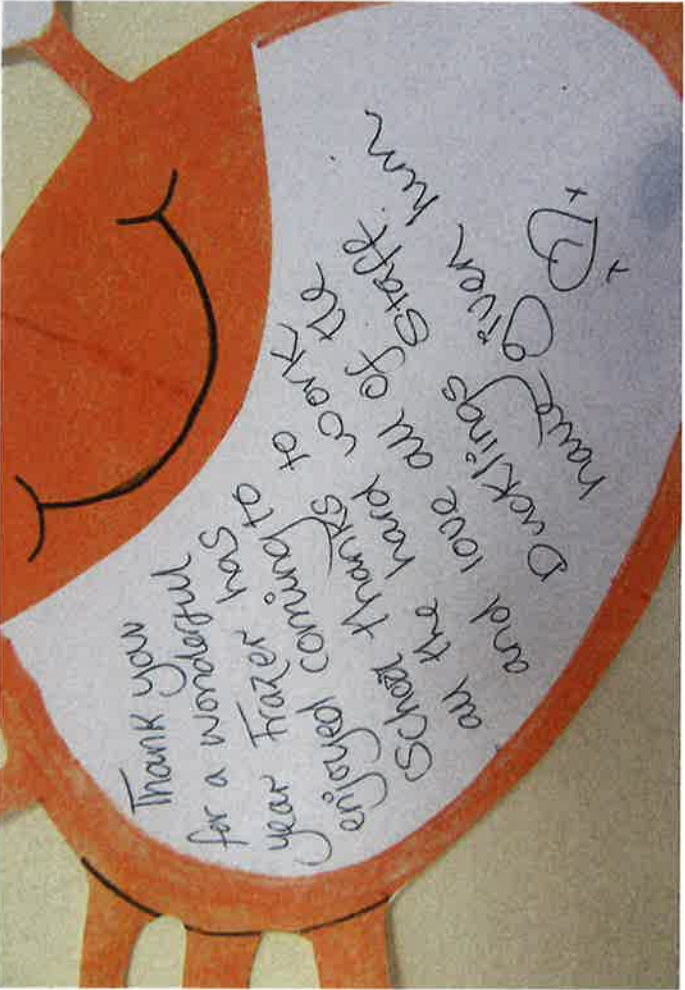 Thank you
for a wonderful
year Frazer has
enjoyed coming to
School thanks to
all the hard work
and love all of the
Ducklings Staff
have given him
x x